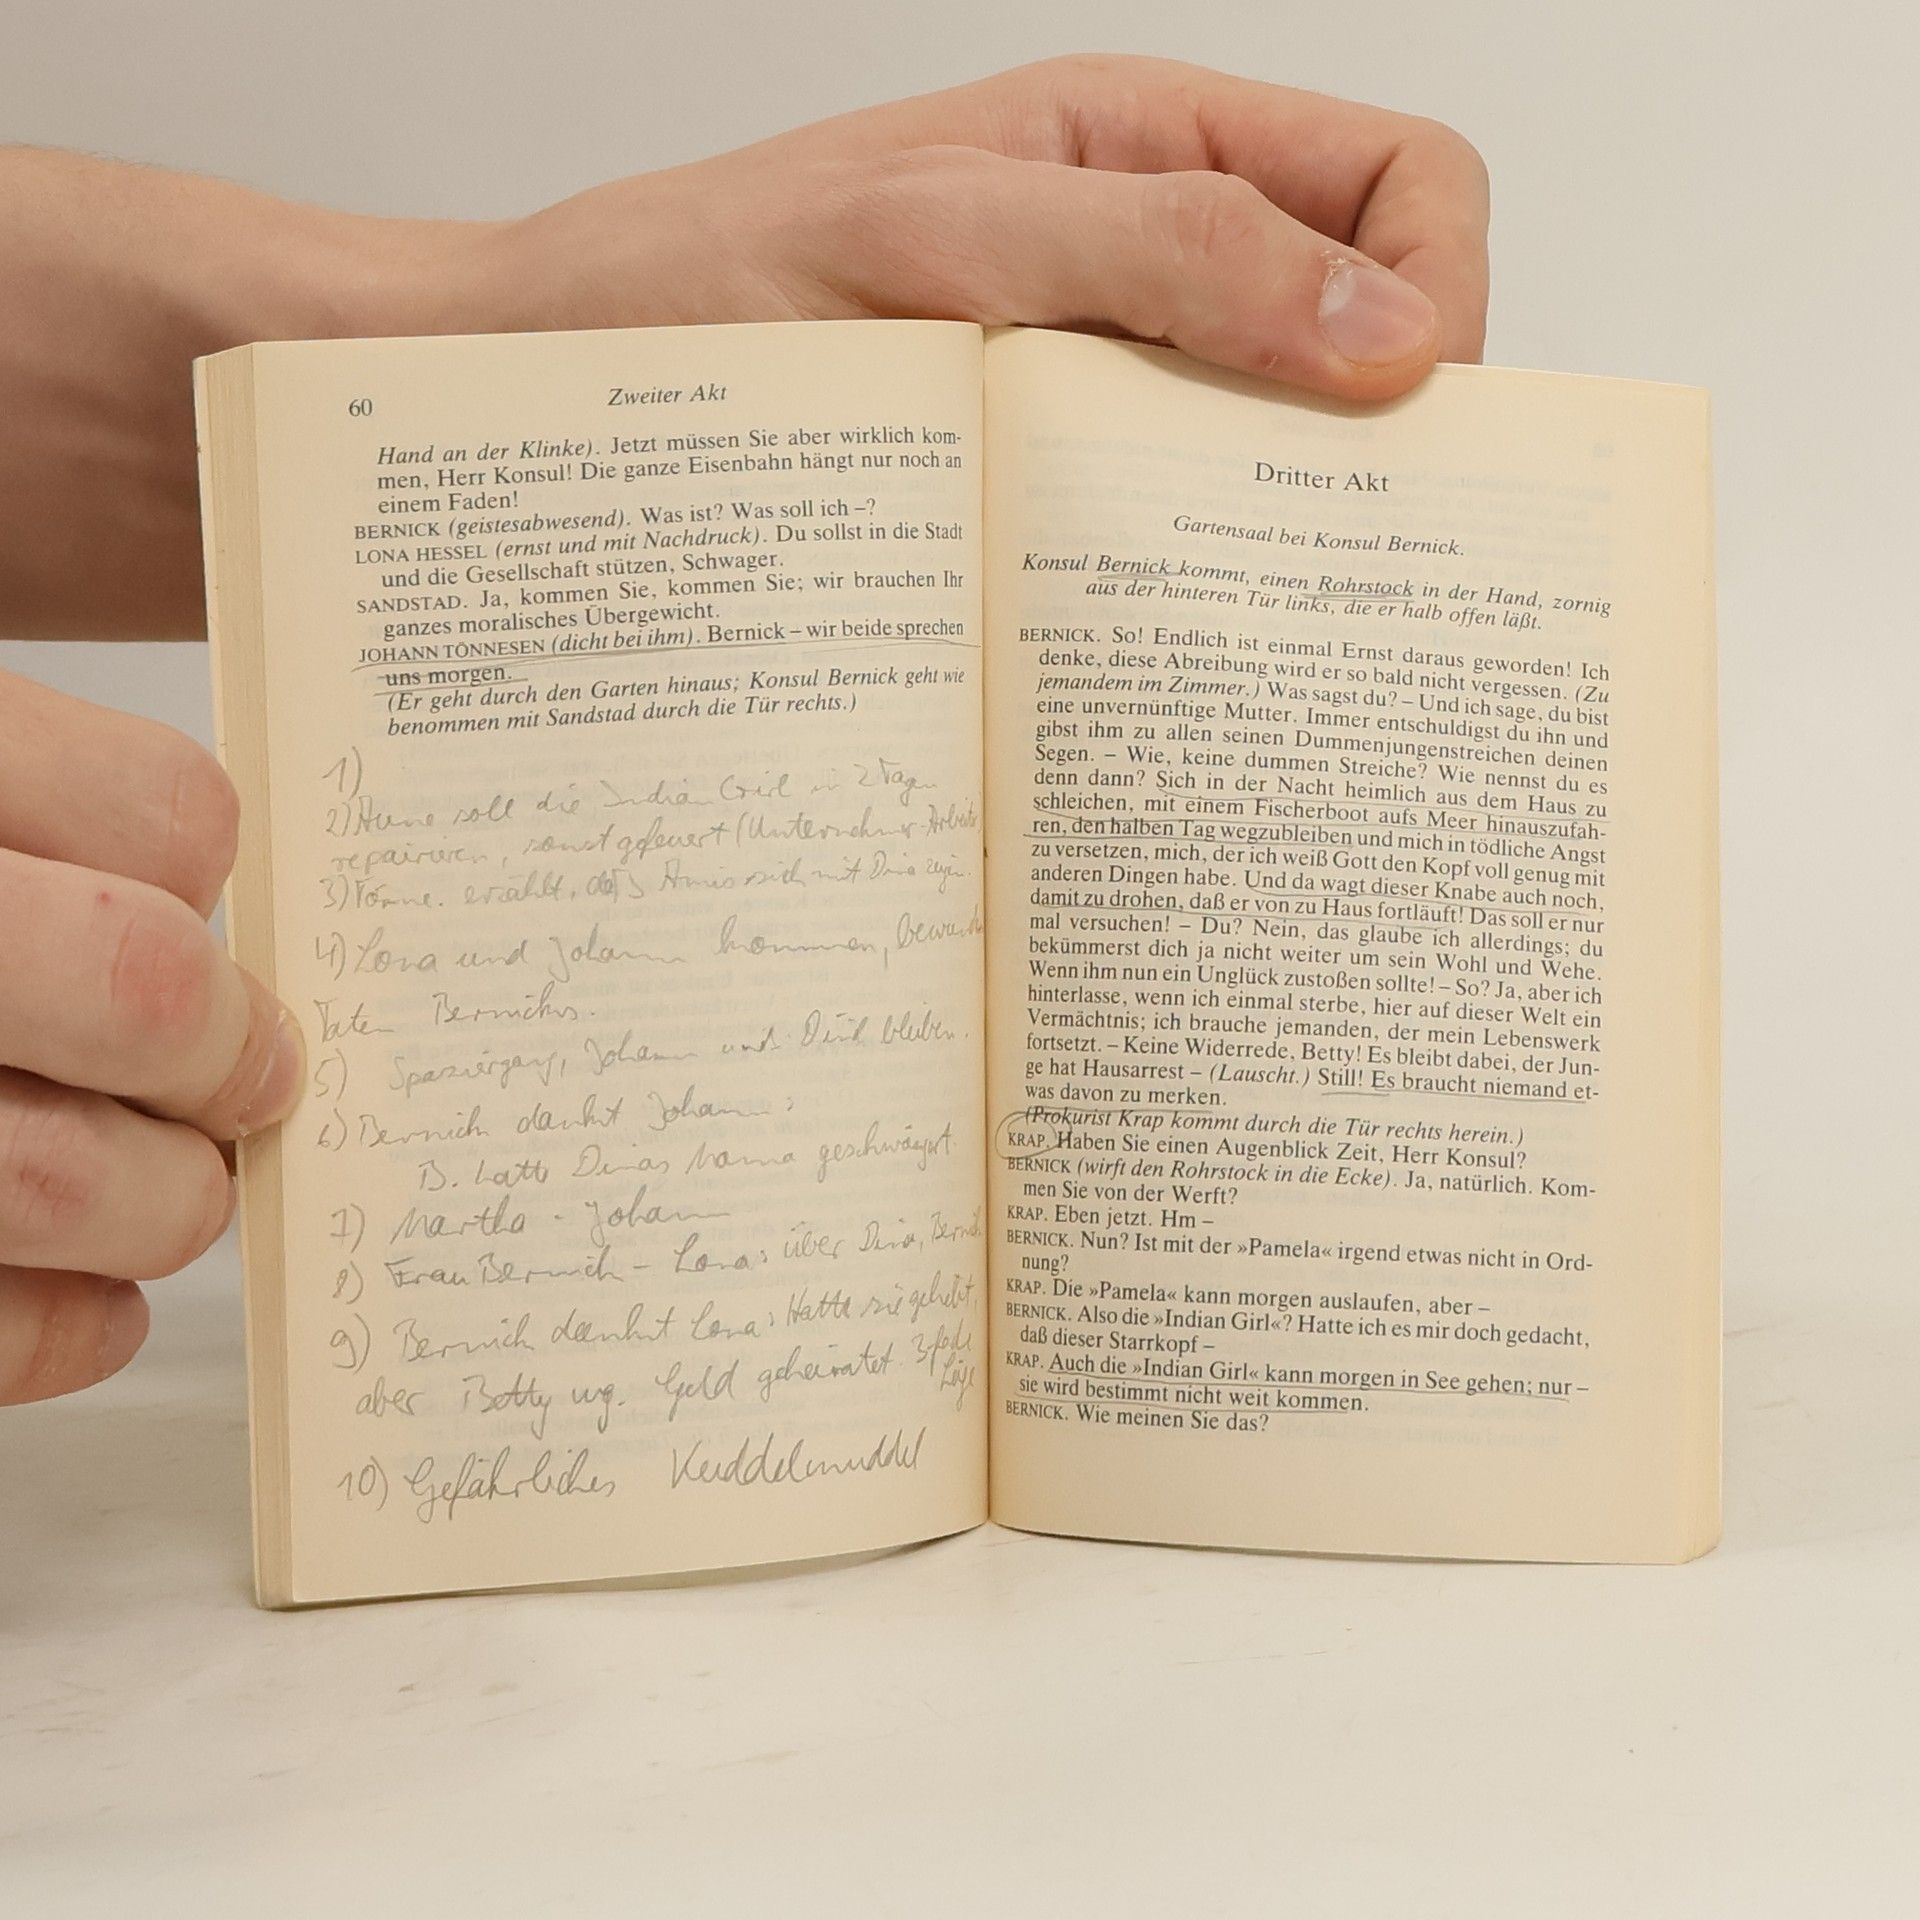 60
Zweiter Akt
Hand an der Klinke). Jetzt müssen Sie aber wirklich kom-
men, Herr Konsul! Die ganze Eisenbahn hängt nur noch an
einem Faden!
BERNICK (geistesabwesend). Was ist? Was soll ich –?
LONA HESSEL (ernst und mit Nachdruck). Du sollst in die Stadt
und die Gesellschaft stützen, Schwager.
SANDSTAD. Ja, kommen Sie, kommen Sie; wir brauchen Ihr
ganzes moralisches Übergewicht.
JOHANN TÖNNESEN (dicht bei ihm). Bernick – wir beide sprechen
uns morgen.
(Er geht durch den Garten hinaus; Konsul Bernick geht wie
benommen mit Sandstad durch die Tür rechts.)
1)
2) Aune soll die Indian Girl in 2 Tagen
repairieren, sonst gefeuert (Unternehmer-Arbeiter)
3) Tönne. erzählt, daß sich mit Dina
4) Lona und Johann kommen,
Taten Bernicks.
5) Spaziergang, Johann und Dina bleiben.
6) Bernick dankt Johann:
B. hatte Dinas Mama geschwängert.
7) Martha - Johann
8) Frau Bernick - Lona: über Dina, Bernick
9) Bernick dankt Lona: Hatte sie geliebt,
aber Betty wg. Geld geheiratet. 3fache
Lüge
10) Gefährliches Kuddelmuddel
Dritter Akt
Gartensaal bei Konsul Bernick.
Konsul Bernick kommt, einen Rohrstock in der Hand, zornig
aus der hinteren Tür links, die er halb offen läßt.
BERNICK. So! Endlich ist einmal Ernst daraus geworden! Ich
denke, diese Abreibung wird er so bald nicht vergessen. (Zu
jemandem im Zimmer.) Was sagst du? – Und ich sage, du bist
eine unvernünftige Mutter. Immer entschuldigst du ihn und
gibst ihm zu allen seinen Dummenjungenstreichen deinen
Segen. – Wie, keine dummen Streiche? Wie nennst du es
denn dann? Sich in der Nacht heimlich aus dem Haus zu
schleichen, mit einem Fischerboot aufs Meer hinauszufah-
ren, den halben Tag wegzubleiben und mich in tödliche Angst
zu versetzen, mich, der ich weiß Gott den Kopf voll genug mit
anderen Dingen habe. Und da wagt dieser Knabe auch noch,
damit zu drohen, daß er von zu Haus fortläuft! Das soll er nur
mal versuchen! – Du? Nein, das glaube ich allerdings; du
bekümmerst dich ja nicht weiter um sein Wohl und Wehe.
Wenn ihm nun ein Unglück zustoßen sollte! – So? Ja, aber ich
hinterlasse, wenn ich einmal sterbe, hier auf dieser Welt ein
Vermächtnis; ich brauche jemanden, der mein Lebenswerk
fortsetzt. – Keine Widerrede, Betty! Es bleibt dabei, der Jun-
ge hat Hausarrest – (Lauscht.) Still! Es braucht niemand et-
was davon zu merken.
(Prokurist Krap kommt durch die Tür rechts herein.)
KRAP. Haben Sie einen Augenblick Zeit, Herr Konsul?
BERNICK (wirft den Rohrstock in die Ecke). Ja, natürlich. Kom-
men Sie von der Werft?
KRAP. Eben jetzt. Hm –
BERNICK. Nun? Ist mit der »Pamela« irgend etwas nicht in Ord-
nung?
KRAP. Die »Pamela« kann morgen auslaufen, aber –
BERNICK. Also die »Indian Girl«? Hatte ich es mir doch gedacht,
daß dieser Starrkopf –
KRAP. Auch die »Indian Girl« kann morgen in See gehen; nur –
sie wird bestimmt nicht weit kommen.
BERNICK. Wie meinen Sie das?